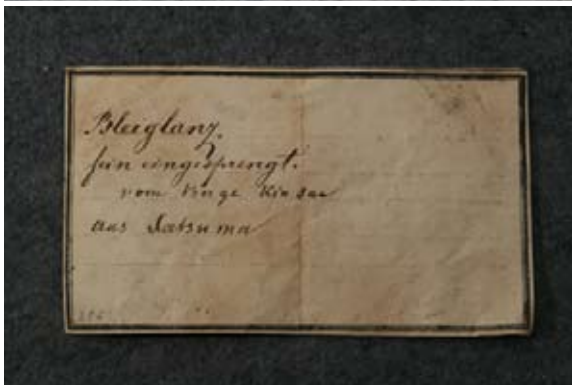 Bleiglanz.
fein eingesprengt.
vom Kinsan
aus Satsuma